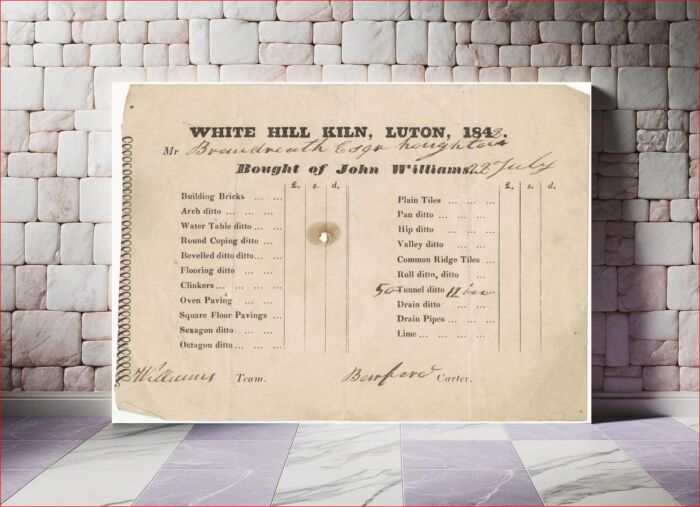 WHITE HILL KILN, LUTON, 1848.
Mr Brandreth Esqr Houghton
Bought of John Williams 22 July
£. s. d.
Building Bricks ... ...
Arch ditto ... ... ...
Water Table ditto ... ...
Round Coping ditto ...
Bevelled ditto ditto ... ...
Flooring ditto ... ...
Clinkers ... ... ...
Oven Paving ... ...
Square Floor Pavings ...
Sexagon ditto ... ...
Octagon ditto ... ... ...
£. s. d.
Plain Tiles ... ... ...
Pan ditto ... ... ...
Hip ditto ... ... ...
Valley ditto ... ...
Common Ridge Tiles ...
Roll ditto, ditto ...
50 Tunnel ditto 12 in
Drain ditto ... ...
Drain Pipes ... ... ...
Lime ... ... ... ...
Williams Team.
Carter.